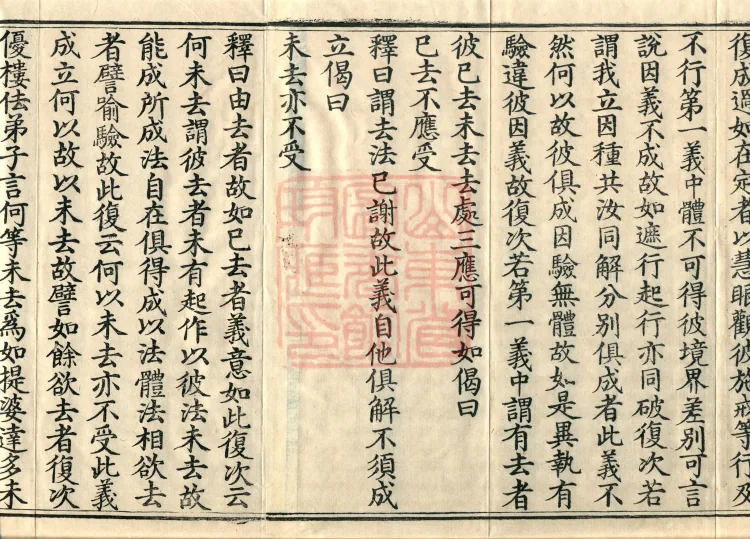 復成過如在定者以慧眼觀彼施戒等行及
不行第一義中體不可得彼境界差別可言
說因義不成故如遮行起行亦同破復次若
謂我立因種共汝同解分別俱成者此義不
然何以故彼俱成因驗無體故如是異執有
驗違彼因義故復次若第一義中謂有去者
彼已去未去去處三應可得如偈曰
已去不應受
釋曰謂去法已謝故此義自他俱解不須成
立偈曰
未去亦不受
釋曰由去者故如已去者義意如此復次云
何未去謂彼去者未有起作以彼法未去故
能成所成法自在俱得成以法體法相欲去
者譬喻驗故此復云何以未去亦不受此義
成立何以故以未去故譬如餘欲去者復次
優樓佉弟子言何等未去為如提婆達多未